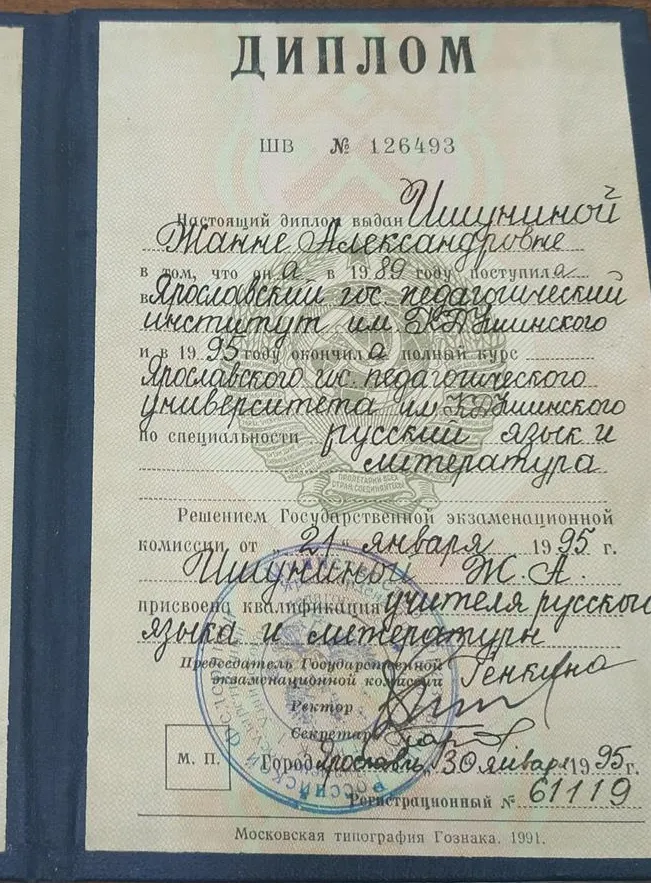 ДИПЛОМ
ШВ № 126493
Настоящий диплом выдан Ишуниной
Жанне Александровне
в том, что она в 1989 году поступила
в Ярославский гос. педагогический
институт им. К.Д.Ушинского
и в 1995 году окончила полный курс
Ярославского гос. педагогического
университета им. К.Д.Ушинского
по специальности русский язык и
литература
ПРОЛЕТАРИИ ВСЕХ
СТРАН, СОЕДИНЯЙТЕСЬ!
Решением Государственной экзаменационной
комиссии от „21" января 1995 г.
Ишуниной Ж.А.
присвоена квалификация учителя русского
языка и литературы
Председатель Государственной
экзаменационной комиссии Генкина
Ректор
Секретарь
М. П.
Город Ярославль, 30 января 1995 г.
Регистрационный № 61119
Московская типография Гознака. 1991.